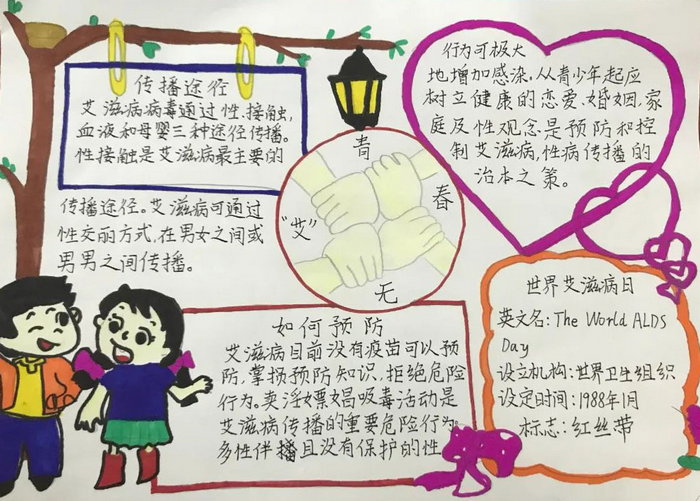 传播途径
艾滋病病毒通过性.接触,
血液和母婴三种途径传播。
性接触是艾滋病最主要的
传播途径。艾滋病可通过
性交丽方式,在男女之间或
男男之间传播。
青
春
"艾"
无
行为可极大
地增加感添,从青少年起应
树立健康的恋爱、婚姻,家
庭及性观念是预防和控
制艾滋病,性病传播的
治本之策。
如何预防
艾滋病目前没有疫苗可以预
防,掌损预防知识,拒绝危险
行为。卖淫嫖娼吸毒活动是
艾滋病传播的重要危险行为。
多性伴播且没有保护的性
世界艾滋病日
英文名:The World ALDS
Day
设立机构:世界卫生组织
设定时间:1988年1月
标志:红丝带